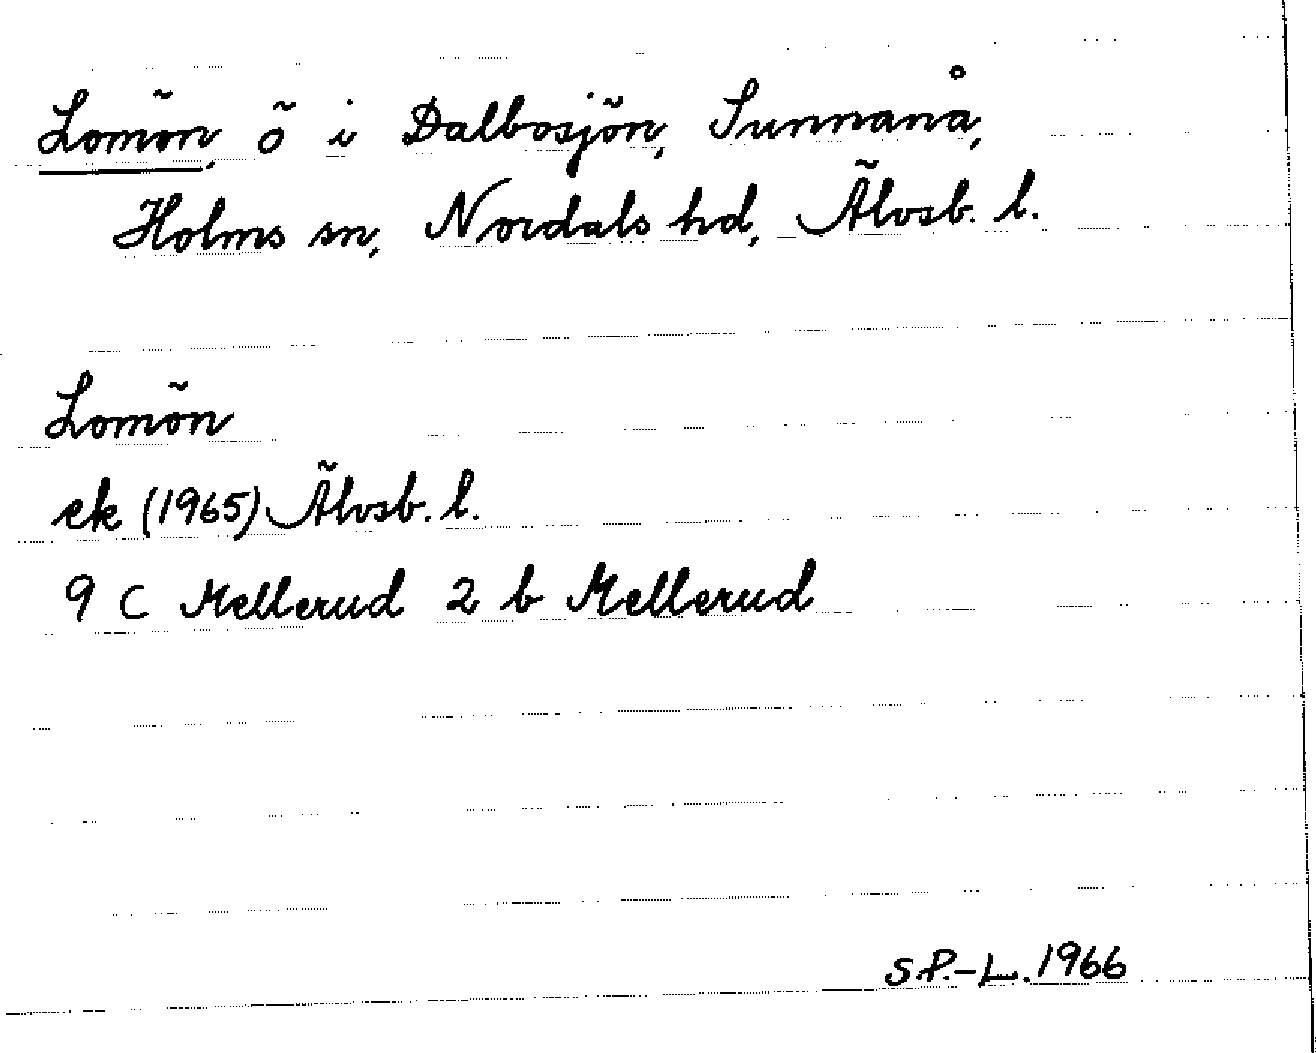 Lomön, ö i Dalbosjön, Sunnanå,
Holms sn, Nordals hd, Älvsb. l.
Lomön
ek (1965) Älvsb. l.
9 C Mellerud 2 b Mellerud
S P.-L. 1966